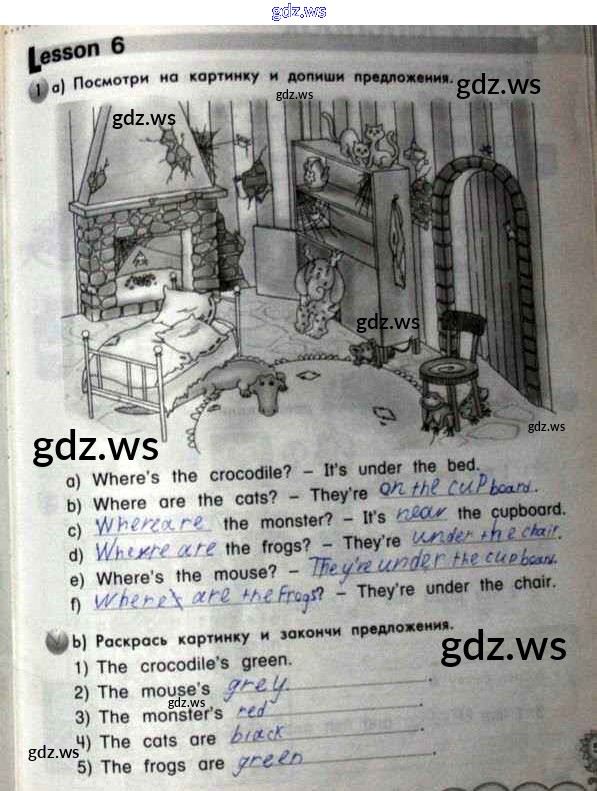 gdz.ws
Lesson 6
1 a) Посмотри на картинку и допиши предложения.
gdz.ws
gdz.ws
gdz.ws
gdz.ws
gdz.ws
gdz.ws
a) Where's the crocodile? – It's under the bed.
b) Where are the cats? – They're on the cupboard.
c) Where are the monster? – It's near the cupboard.
d) Where are the frogs? – They're under the chair.
e) Where's the mouse? – They're under the cupboard.
f) Where are the frogs? – They're under the chair.
b) Раскрась картинку и закончи предложения.
gdz.ws
1) The crocodile's green.
2) The mouse's grey.
gdz.ws
3) The monster's red
4) The cats are black
gdz.ws
gdz.ws
5) The frogs are green